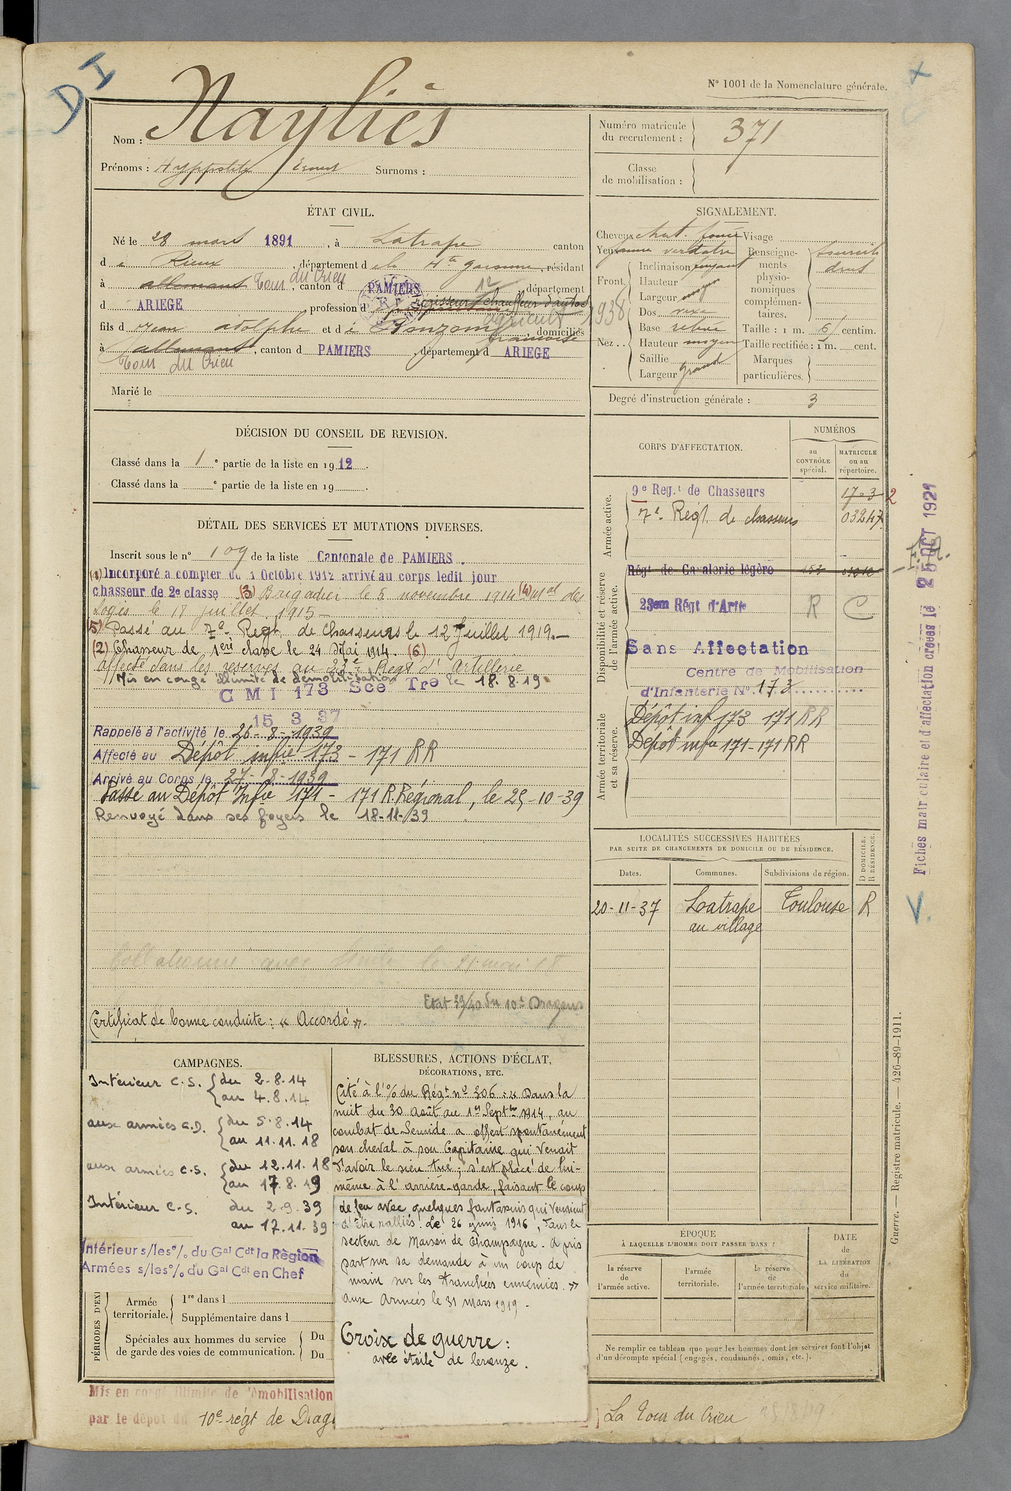 D I
N° 1001 de la Nomenclature générale.
Nom : Nayliès
Prénoms : Hyppolite Ernest Surnoms :
Numéro matricule du recrutement : 371
Classe de mobilisation :
ÉTAT CIVIL.
Né le 28 mars 1891, à Latrape canton
d e Rieux, département d e la Hte Garonne, résidant
à allemans Tour du Crieu, canton d PAMIERS département
d ARIEGE profession d chauffeur d'autos
fils d e Jean Adolphe et d e Françoise domiciliés
à allemans, canton d PAMIERS, département d ARIEGE
Tour du Crieu
Marié le
SIGNALEMENT.
Cheveux chat. foncé Visage
Yeux verdâtre
Renseignements physionomiques complémentaires :
Front. Inclinaison
Hauteur moy
Largeur moy
Nez.. Dos
Base relevée
Hauteur moyen
Saillie
Largeur grand
Taille : 1 m. 61 centim.
Taille rectifiée : 1 m. cent.
Marques particulières.
1938
Degré d'instruction générale : 3
DÉCISION DU CONSEIL DE REVISION.
Classé dans la 1e partie de la liste en 1912.
Classé dans la e partie de la liste en 19
DÉTAIL DES SERVICES ET MUTATIONS DIVERSES.
Inscrit sous le n° 109 de la liste Cantonale de PAMIERS
(1) Incorporé a compter du 1 Octobre 1912 arrivé au corps ledit jour
chasseur de 2e classe (3) Brigadier le 5 novembre 1914 (4) Mal des
Logis le 17 juillet 1915 -
(5) Passé au 7e Regt. de Chasseurs le 12 Juillet 1919. -
(2) Chasseur de 1ère classe le 24 Mai 1914. (6)
affecté dans les réserves au 23e Regt d'Artillerie
Mis en congé illimité de démobilisation le 18.8.19.
C M I 173 Sce Tre
15 3 37
Rappelé à l'activité le 26-8-1939
Affecté au Dépôt infie 173 - 171 RR
Arrivé au Corps le 27-8-1939
Passé au Dépôt Infie 171 - 171 R. Régional, le 25-10-39
Renvoyé dans ses foyers le 18-11-39
Etat 39/40 du 10e Dragons
Certificat de bonne conduite : « Accordé ».
CORPS D'AFFECTATION.
NUMÉROS
au CONTRÔLE spécial.
MATRICULE ou au répertoire.
Armée active.
9e Reg.t de Chasseurs 1703 2
7e Regt. de chasseurs 03247
Disponibilité et réserve de l'armée active.
Régt de Cavalerie légère
23em Régt d'Arttie R C
Sans Affectation
Centre de Mobilisation
d'Infanterie N° 173
Armée territoriale et sa réserve.
Dépôt inf 173 171 RR
Dépôt infie 171-171 RR
LOCALITÉS SUCCESSIVES HABITÉES
PAR SUITE DE CHANGEMENTS DE DOMICILE OU DE RÉSIDENCE.
Dates. Communes. Subdivisions de région. D DOMICILE, R RÉSIDENCE.
20-11-37 Latrape Toulouse R
au village
Fiches matriculaire et d'affectation créées le 25 OCT 1921
V.
Guerre. — Registre matricule. — 426-89-1911.
CAMPAGNES.
Intérieur C.S. { du 2.8.14
au 4.8.14
aux armées C.D. { du 5.8.14
au 11.11.18
aux armées C.S. { du 12.11.18
au 17.8.19
Intérieur C.S. du 2.9.39
au 17.11.39
Intérieur s/les°/. du Gal Cdt la Région
Armées s/les°/. du Gal Cdt en Chef
BLESSURES, ACTIONS D'ÉCLAT,
DÉCORATIONS, ETC.
Cité à l'% du Régt n° 306 : « Dans la
nuit du 30 Août au 1er Septbre 1914, au
combat de Senuide a offert spontanément
son cheval à son Capitaine qui venait
d'avoir le sien tué ; s'est placé de lui-
même à l'arrière-garde, faisant le coup
de feu avec quelques fantassins qui venaient
d'être ralliés. Le 26 juin 1916, dans le
secteur de Maison de Champagne. A pris
part sur sa demande à un coup de
main sur les tranchées ennemies. »
aux Armées le 31 mars 1919.
Croix de guerre :
avec étoile de bronze.
PÉRIODES D'EX
Armée territoriale. 1re dans l
Supplémentaire dans l
Spéciales aux hommes du service de garde des voies de communication. Du
Du
ÉPOQUE
À LAQUELLE L'HOMME DOIT PASSER DANS :
la réserve de l'armée active.
l'armée territoriale.
la réserve de l'armée territoriale.
DATE de LA LIBÉRATION du service militaire.
Ne remplir ce tableau que pour les hommes dont les services font l'objet
d'un décompte spécial (engagés, condamnés, omis, etc.).
Mis en congé illimité de démobilisation
par le dépôt du 10e régt de Drag
La Tour du Crieu 18/8/19